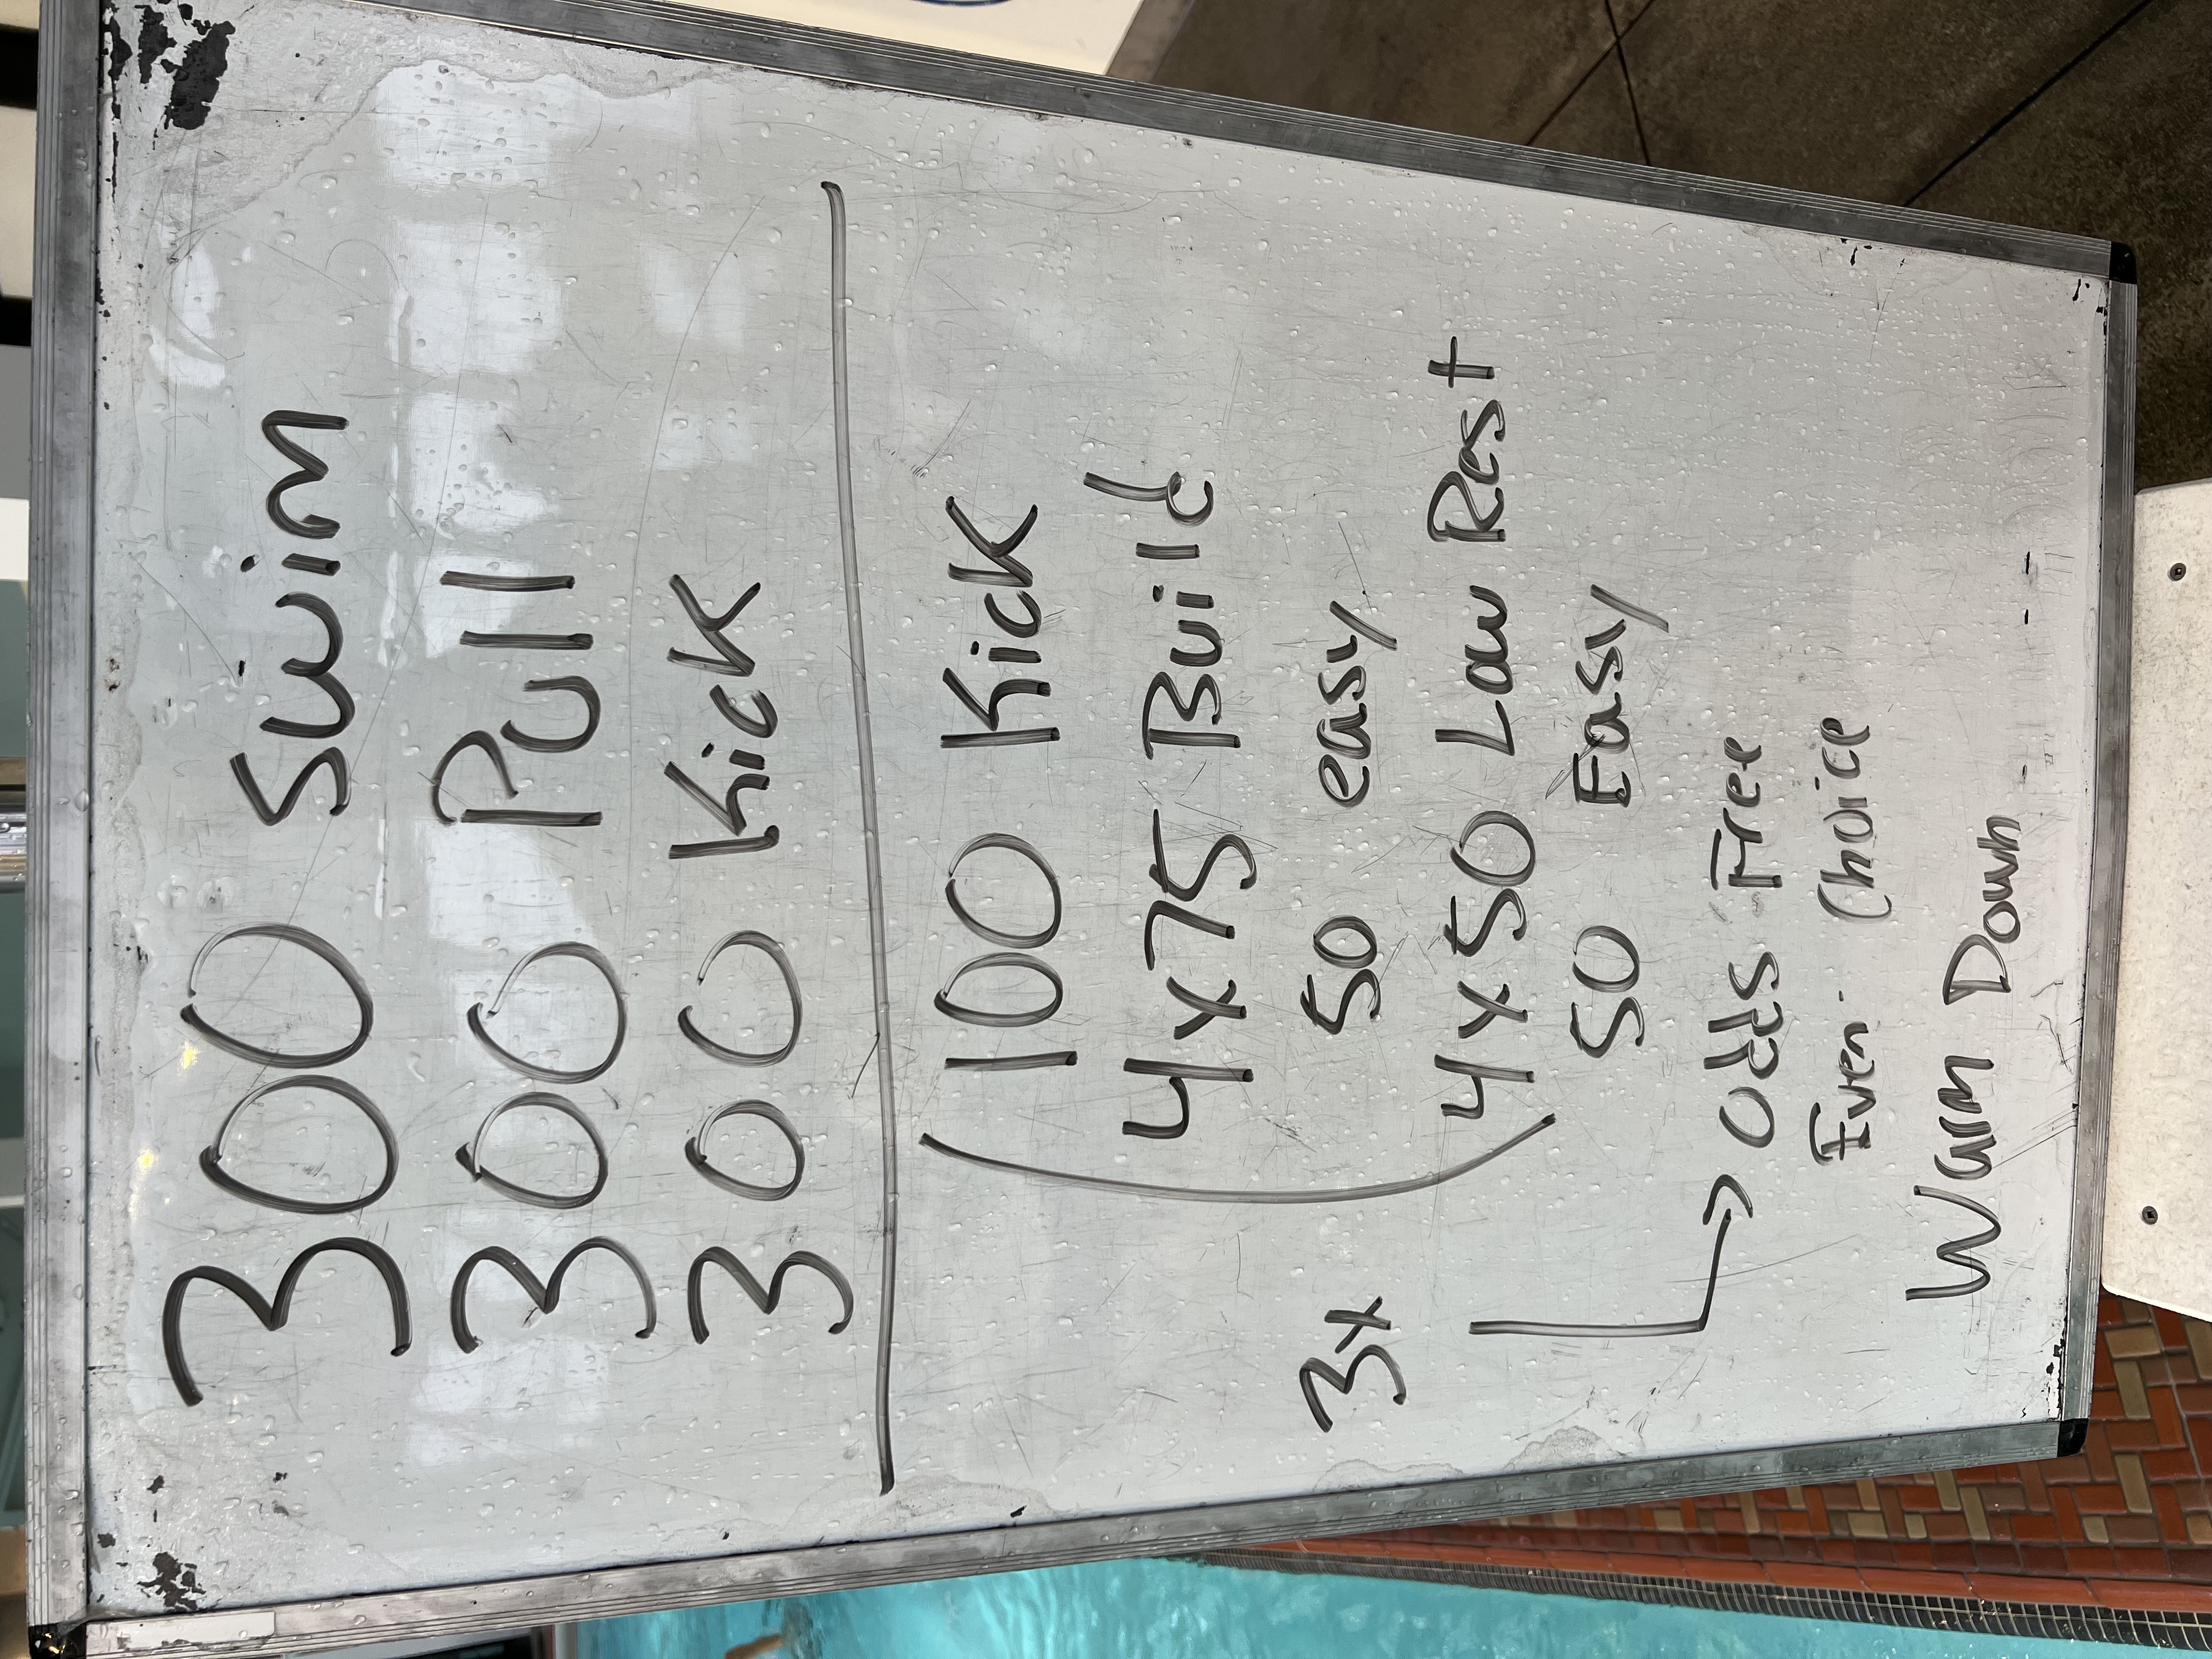 300 Swim
300 Pull
300 Kick
100 Kick
4x75 Build
50 easy
3x
4x50 Low Rest
50 Easy
Odds Free
Even - Choice
Warm Down